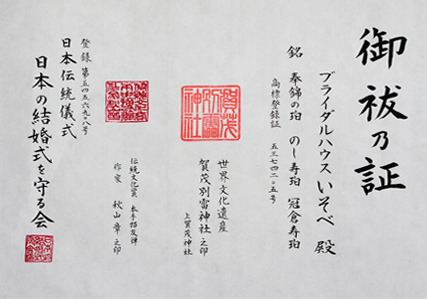 御祓乃証
ブライダルハウスいそべ 殿
銘 奉錦の珀 のし寿珀 冠倉寿珀
商標登録証 五三七四二一五号
世界文化遺産
賀茂別雷神社之印
上賀茂神社
賀茂別雷神社
伝統文化賞 本手描友禅
作家 秋山章之印
登録 第五四五六九八号
日本伝統儀式
日本の結婚式を守る会